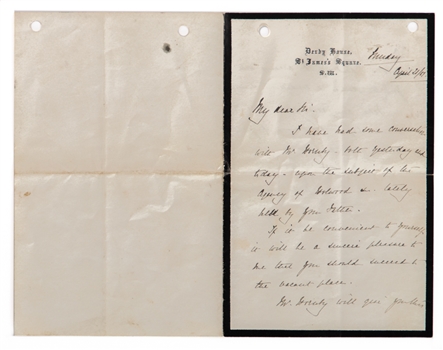 Derby House,
St James's Square.
S.W.
April 21/
My dear Sir.
I have had some conversation
with Mr. both yesterday and
today - upon the subject of the
Agency of &c. lately
held by your Father.
If it be convenient to yourself
it will be a sincere pleasure to
me that you should succeed to
the vacant place.
Mr. will give you this